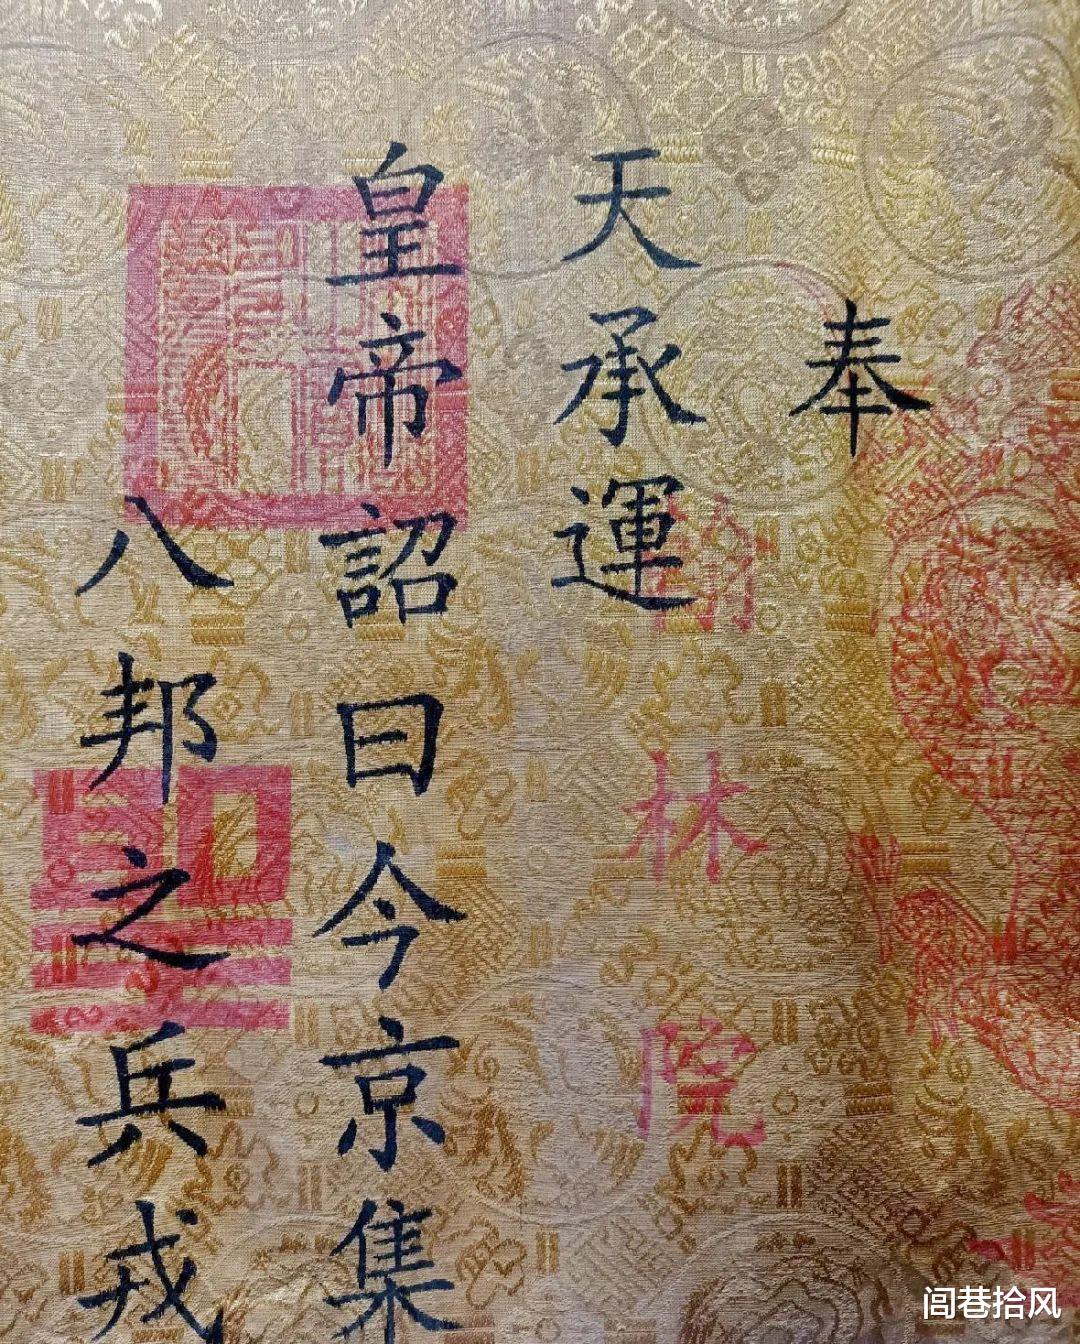 奉
天承運
皇帝詔曰今京集
八邦之兵戎
翰林院
闾巷拾风